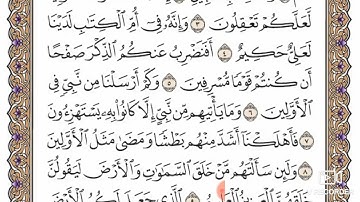 لَّعَلَّكُمْ تَعْقِلُونَ ٣ وَإِنَّهُۥ فِىٓ أُمِّ ٱلْكِتَٰبِ لَدَيْنَا
لَعَلِىٌّ حَكِيمٌ ٤ أَفَنَضْرِبُ عَنكُمُ ٱلذِّكْرَ صَفْحًا
أَن كُنتُمْ قَوْمًا مُّسْرِفِينَ ٥ وَكَمْ أَرْسَلْنَا مِن نَّبِىٍّ فِى
ٱلْأَوَّلِينَ ٦ وَمَا يَأْتِيهِم مِّن نَّبِىٍّ إِلَّا كَانُوا۟ بِهِۦ يَسْتَهْزِءُونَ
٧ فَأَهْلَكْنَآ أَشَدَّ مِنْهُم بَطْشًا وَمَضَىٰ مَثَلُ ٱلْأَوَّلِينَ
٨ وَلَئِن سَأَلْتَهُم مَّنْ خَلَقَ ٱلسَّمَٰوَٰتِ وَٱلْأَرْضَ لَيَقُولُنَّ
خَلَقَهُنَّ ٱلْعَزِيزُ ٱلْعَلِيمُ ٩ ٱلَّذِى جَعَلَ لَكُمُ ٱلْأَرْضَ